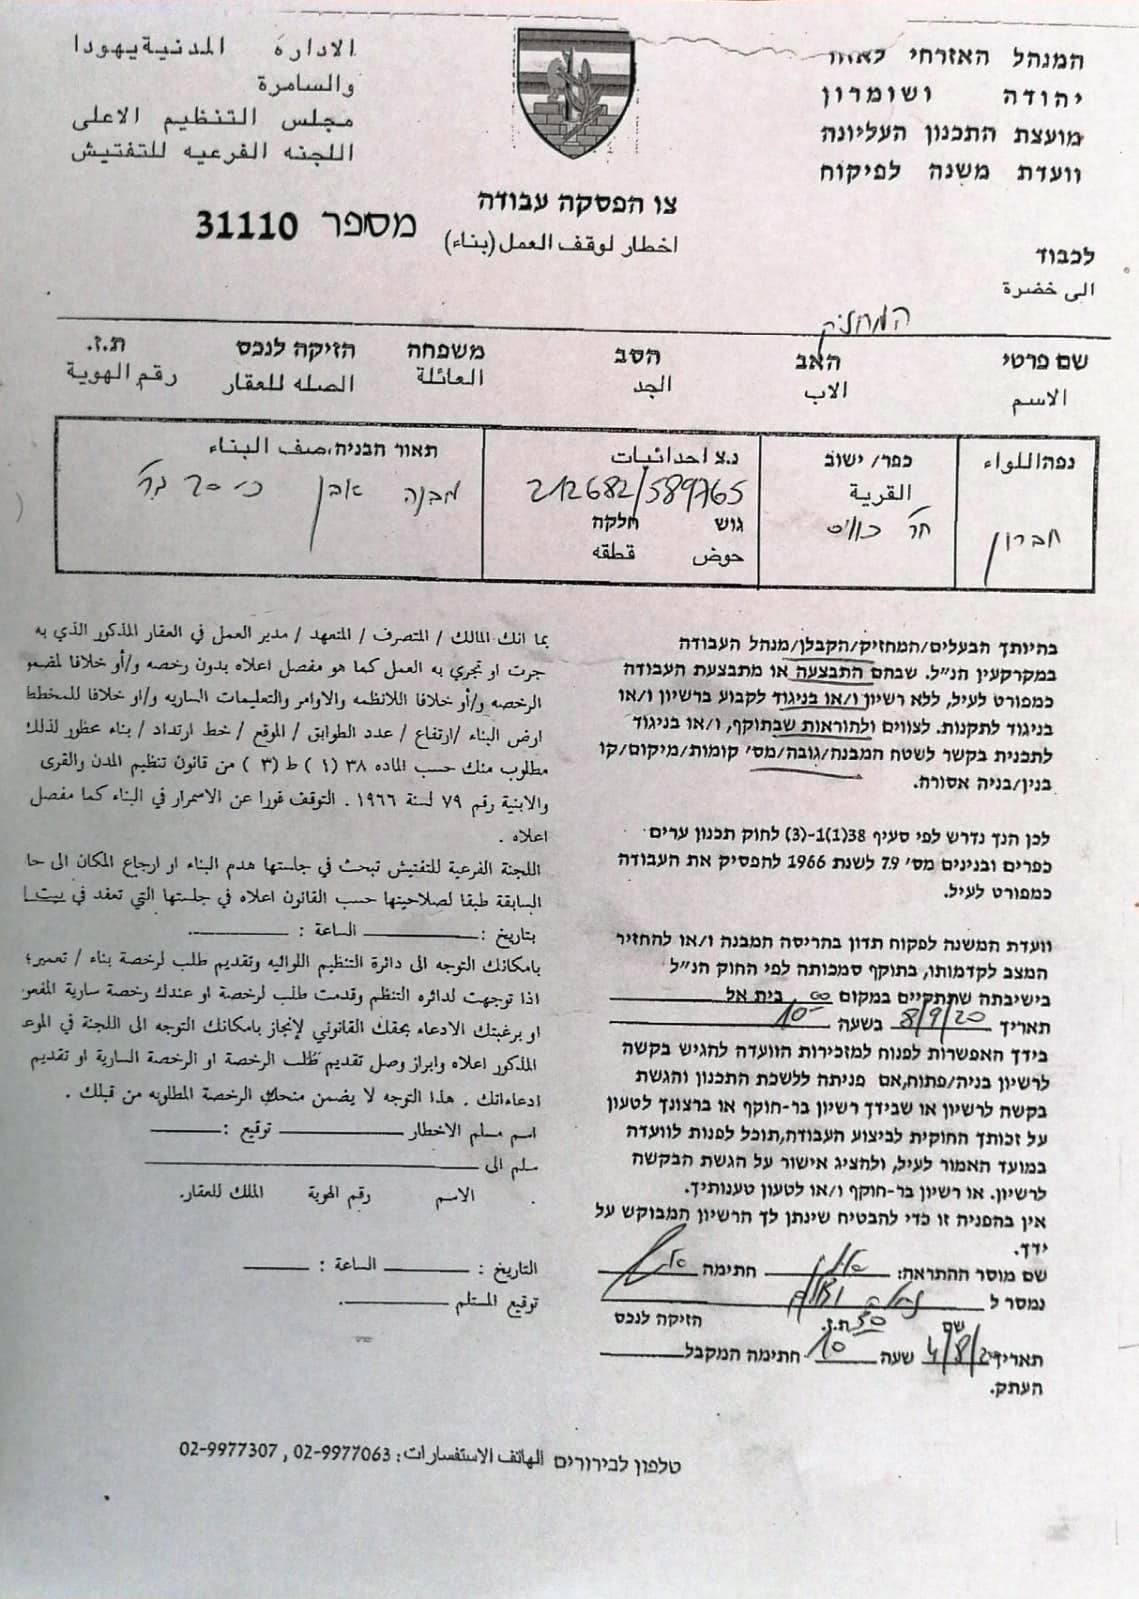 המנהל האזרחי לאזור
יהודה ושומרון
מועצת התכנון העליונה
וועדת משנה לפיקוח
الادارة المدنية يهودا
والسامرة
مجلس التنظيم الاعلى
اللجنه الفرعيه للتفتيش
צו הפסקה עבודה
اخطار لوقف العمل (بناء)
מספר 31110
לכבוד
الى خضرة
המחזיק
שם פרטי האב הסב משפחה הזיקה לנכס ת.ז.
الاسم الاب الجد العائلة الصله للعقار رقم الهوية
נפה اللواء
חברון
כפר/ ישוב
القرية
נ.צ احداثيات
212682/589765
גוש חלקה
حوض قطقه
תאור הבניה، صف البناء
מבנה אבן כ- 50 מ"ר
בהיותך הבעלים/המחזיק/הקבלן/מנהל העבודה
במקרקעין הנ"ל. שבהם התבצעה או מתבצעת העבודה
כמפורט לעיל, ללא רשיון ו/או בניגוד לקבוע ברשיון ו/או
בניגוד לתקנות. לצווים ולהוראות שבתוקף, ו/או בניגוד
לתכנית בקשר לשטח המבנה/גובה/מס' קומות/מיקום/קו
בנין/בניה אסורה.
לכן הנך נדרש לפי סעיף 38(1)-1(3) לחוק תכנון ערים
כפרים ובנינים מס' 79 לשנת 1966 להפסיק את העבודה
כמפורט לעיל.
וועדת המשנה לפקוח תדון בהריסה המבנה ו/או להחזיר
המצב לקדמותו, בתוקף סמכותה לפי החוק הנ"ל
בישיבתה שתתקיים במקום בית אל
תאריך 8/9/20 בשעה 10⁰⁰
בידך האפשרות לפנות למזכירות הוועדה להגיש בקשה
לרשיון בניה/פתוח,אם פניתה ללשכת התכנון והגשת
בקשה לרשיון או שבידך רשיון בר-חוקף או ברצונך לטעון
על זכותך החוקית לביצוע העבודה,תוכל לפנות לוועדה
במועד האמור לעיל, ולהציג אישור על הגשת הבקשה
לרשיון. או רשיון בר-חוקף ו/או לטעון טענותיך.
אין בהפניה זו כדי להבטיח שינתן לך הרשיון המבוקש על
ידך.
שם מוסר ההתראה: חתימה
נמסר ל
שם ת.ז. הזיקה לנכס
תאריך 4/8/20 שעה 10 חתימה המקבל
העתק.
بما انك المالك / المتصرف / المتعهد / مدير العمل في العقار المذكور الذي به
جرت او تجري به العمل كما هو مفصل اعلاه بدون رخصه و/أو خلافا لمضمو
الرخصه و/أو خلافا للانظمه والاوامر والتعليمات الساريه و/او خلافا للمخطط
ارض البناء /ارتفاع / عدد الطوابق / الموقع / خط ارتداد / بناء عظور لذلك
مطلوب منك حسب الماده ٣٨ (١ ) ط (٣ ) من قانون تنظيم المدن والقرى
والابنية رقم ٧٩ لسنة ١٩٦٦ . التوقف فورا عن الاسمرار في البناء كما مفصل
اعلاه .
اللجنة الفرعية للتفتيش تبحث في جلستها هدم البناء او ارجاع المكان الى حا
السابقة طبقا لصلاحيتها حسب القانون اعلاه في جلستها التي تعفد في بيت ا
بتاريخ : الساعة :
بامكانك التوجه الى دائرة التنظيم اللوائيه وتقديم طلب لرخصة بناء / تعمير؛
اذا توجهت لدائره التنظم وقدمت طلب لرخصة او عندك رخصة سارية المفعو
او برغبتك الادعاء بحقك القانوني لإنجاز بامكانك التوجه الى اللجنة في الموعا
المذكور اعلاه وابراز وصل تقديم طلب الرخصة او الرخصة السارية او تقديم
ادعاءاتك . هذا التوجه لا يضمن منحك الرخصة المطلوبه من قبلك .
اسم مسلم الاخطار توقيع :
سلم الى
الاسم رقم الهوية الملك للعقار.
التاريخ : الساعة :
توقيع المستلم
טלפון לבירורים الهاتف الاستفسارات: 02-9977063 , 02-9977307